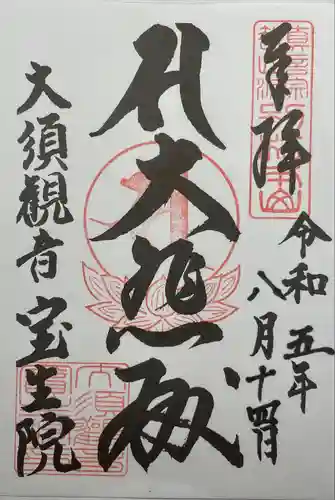 奉拝
令和五年
八月十四日
大悲殿
大須觀音
宝生院